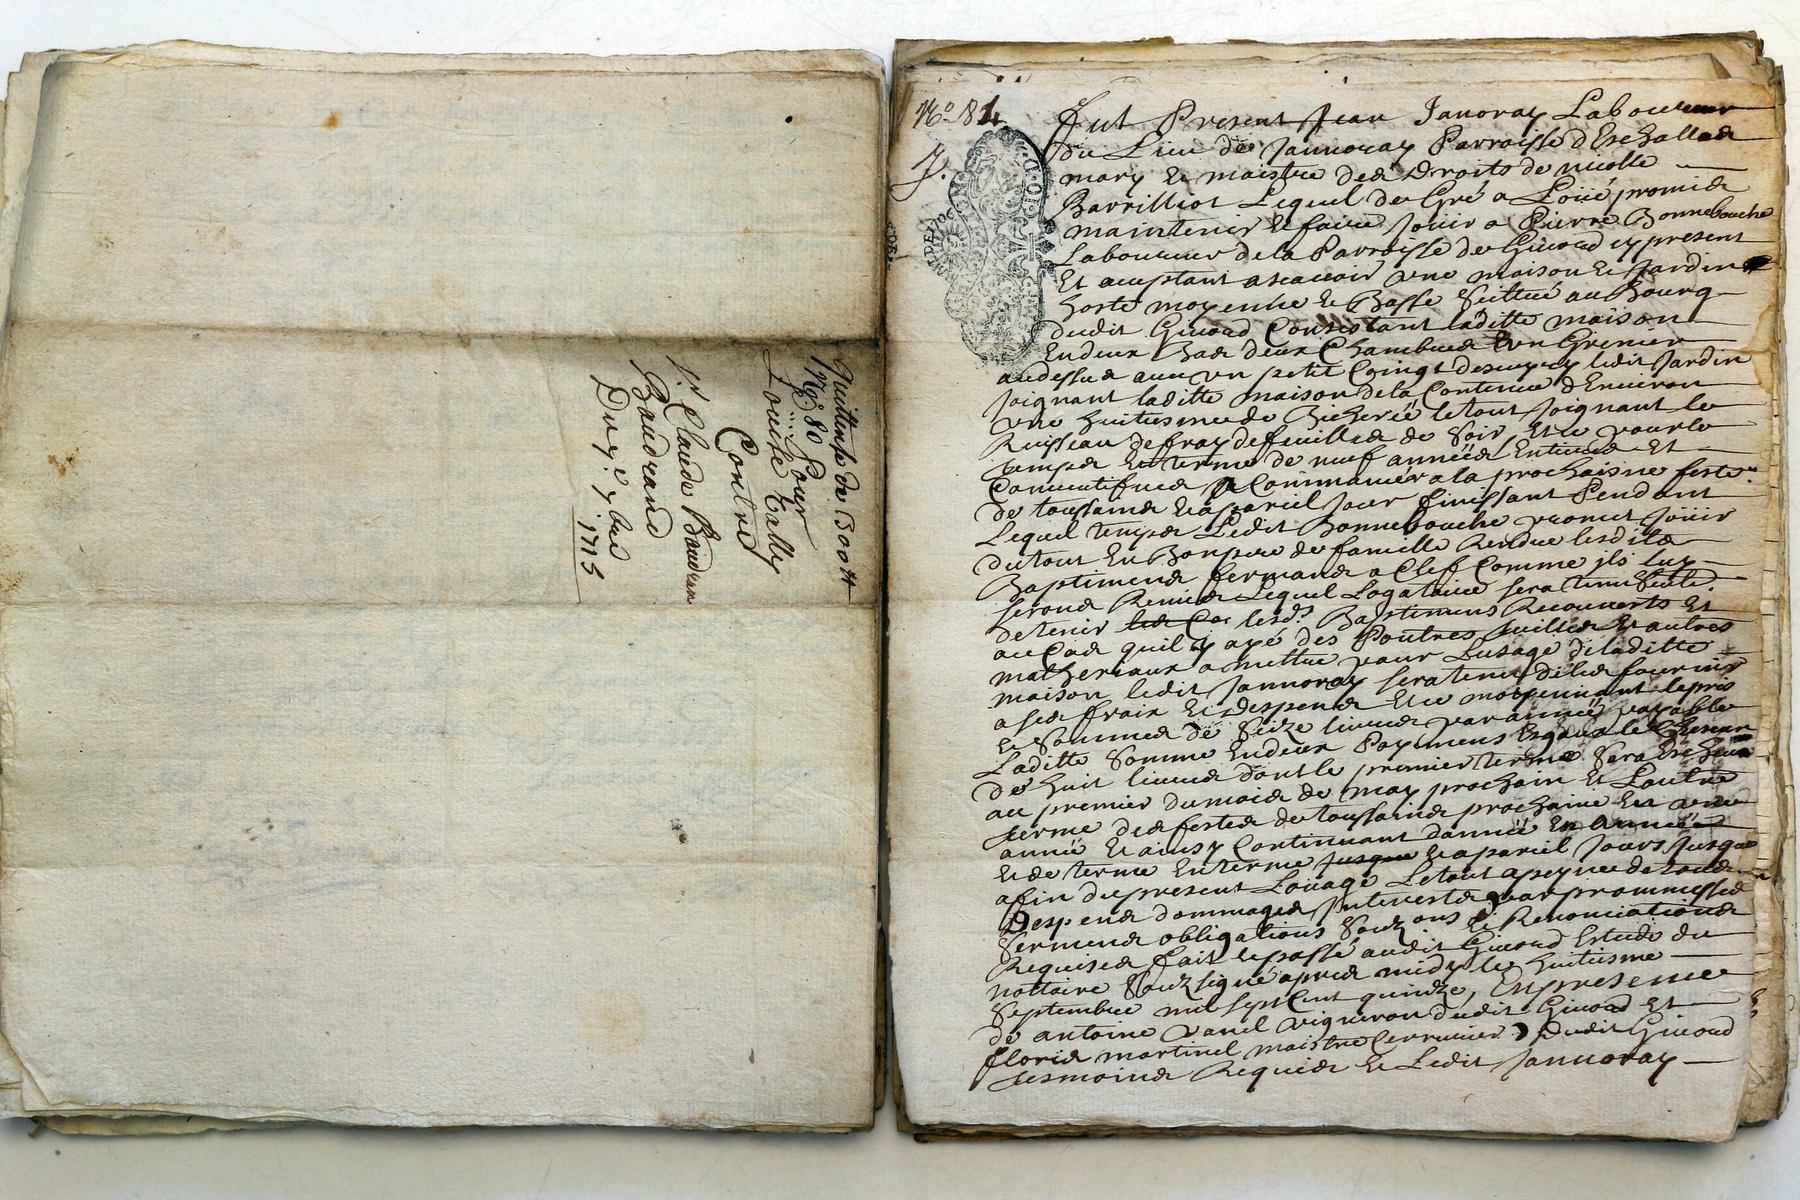 Quittance de 1300 ₶
N.º 80 Pour
Loüise Tally
Contre
S.r Claude Baudran
Baudrand
Du 7.e 7bre
1715
N.º 81
Fut Present Jean Janoray Laboureur
du Lieu de Jannoray Parroisse d'Eschallas
mary et maistre des Droits de nicolle
Barrilliot Lequel de Gré a Loüé promis
maintenir et faire Joüir a Pierre Bonnebouche
Laboureur de la Parroisse de Givord cy present
Et acceptant ascavoir une maison et Jardin
hoste moyenne et Basse scittué au Bourg
dudit Givord Consistant laditte maison
En deux Bas deux Chambres Et un Grenier
audessus avec un petit Coingt descuyry ledit Jardin
Joignant laditte maison de la Contenue d'Environ
une huitiesme de Bicherée le tout Joignant le
Ruisseau de fray de feuilles de Soir, Et ce pour le
temps Et terme de neuf années Entieres Et
Consecutifues A Commancer a la prochaine feste
de toussaincs Et a pariel Jour finissant Pendant
Lequel temps Ledit Bonnebouche promet Joüir
du tout En Bon pere de famille Rendre lesdits
Baptimens fermans a Clef Comme ils luy
seront Remis Lequel Logataire sera tenu
de tenir lesd.s Baptimens Recouverts Et
au Cas quil y aye des Poutres tuilles Et autres
matheriaux a mettre pour Lusage de laditte
maison ledit Jannoray sera tenu de les fournir
a ses frais Et despens Et ce moyennant le pris
Et Somme de Seize livres par année payable
Laditte Somme En deux Payemens Esgaux le
de huit livres dont le premier terme sera Escheu
au premier du mois de may prochain Et Lautre
terme des festes de toussaincs prochaine Et une
année Et ainsy Continuant d'année En année
Et de terme En terme jusque Et a pariel Jours Jusque
a fin du present Loüage Le tout a peyne de tous
Despens dommages Interests par prommesses
Sermens obligations Soubz ons Et Renonciations
Requises fait Et passé audit Givord Estude du
nottaire Soubzsigné apres midy le huitiesme
Septembre mil sept Cent quindze, En presence
de antoine vanel vigneron dudit Givord Et
floris martinel maistre Cerrurier dudit Givord
tesmoins Requis Et Ledit Jannoray